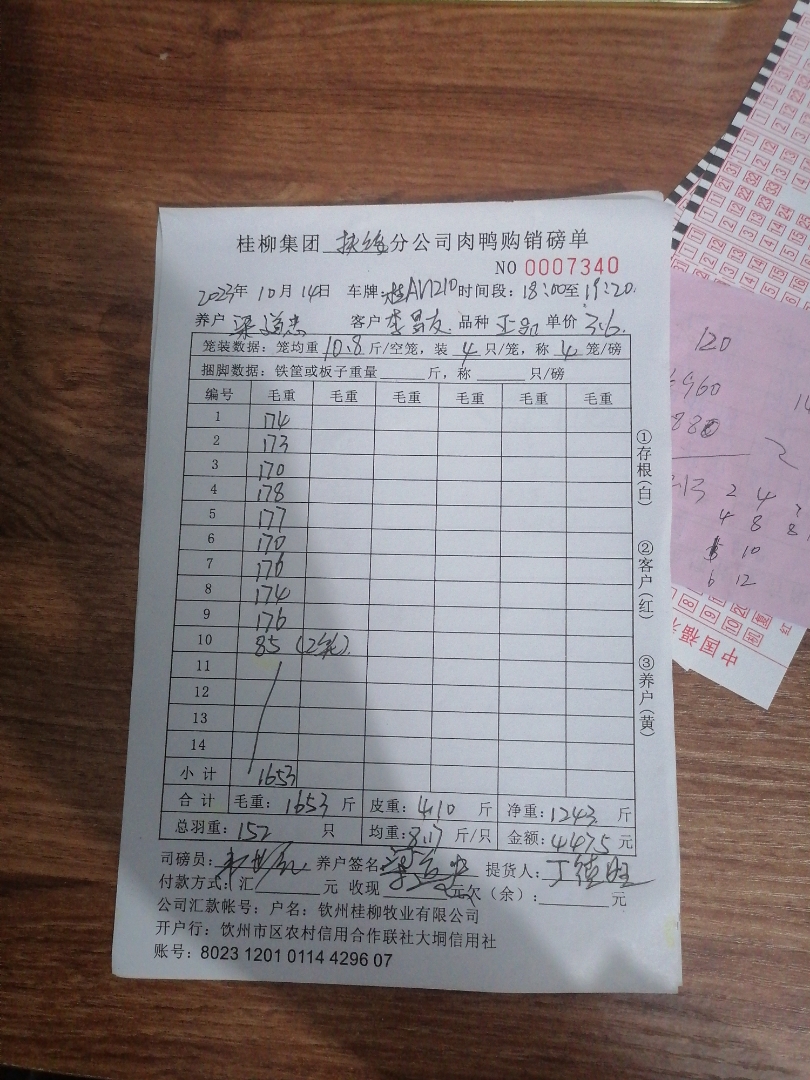 桂柳集团 扶绥 分公司肉鸭购销磅单
NO 0007340
2023年 10月 14日 车牌: 桂AV1210 时间段: 18:00至19:20
养户 梁道杰 客户 李昌友 品种 正品 单价 3.6
笼装数据: 笼均重 10.8 斤/空笼, 装 4 只/笼, 称 4 笼/磅
捆脚数据: 铁筐或板子重量 斤, 称 只/磅
编号 毛重 毛重 毛重 毛重 毛重 毛重
1 174
2 173
3 170
4 178
5 177
6 170
7 176
8 174
9 176
10 85 (2笼)
11
12
13
14
小计 1653
合计 毛重: 1653 斤 皮重: 410 斤 净重: 1243 斤
总羽重: 152 只 均重: 8.17 斤/只 金额: 4475 元
司磅员: 养户签名 提货人: 丁德旺
付款方式: 汇 元 收现 元欠(余): 元
公司汇款帐号: 户名: 钦州桂柳牧业有限公司
开户行: 钦州市区农村信用合作联社大垌信用社
账号: 8023 1201 0114 4296 07
①存根(白)
②客户(红)
③养户(黄)
120
960
880
2 4
4 8 8
10
6 12
中国福